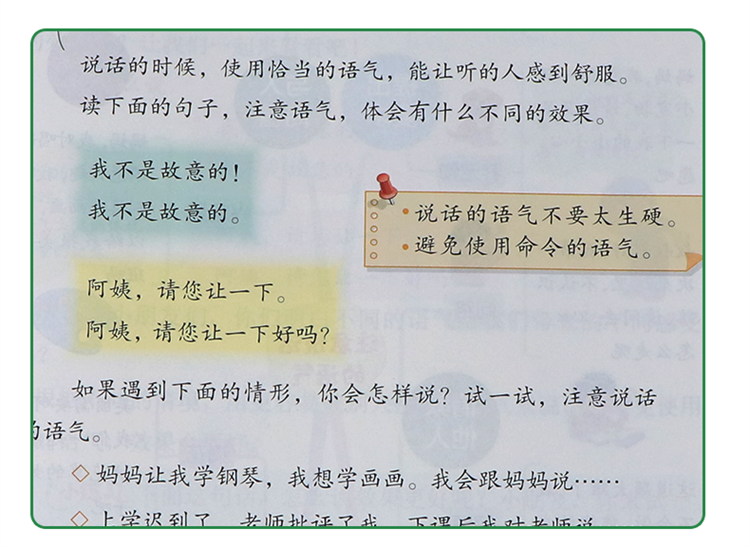 说话的时候，使用恰当的语气，能让听的人感到舒服。
读下面的句子，注意语气，体会有什么不同的效果。
我不是故意的！
我不是故意的。
·说话的语气不要太生硬。
·避免使用命令的语气。
阿姨，请您让一下。
阿姨，请您让一下好吗？
如果遇到下面的情形，你会怎样说？试一试，注意说话
的语气。
◇ 妈妈让我学钢琴，我想学画画。我会跟妈妈说……
◇ 上学迟到了，老师批评了我。下课后我对老师说